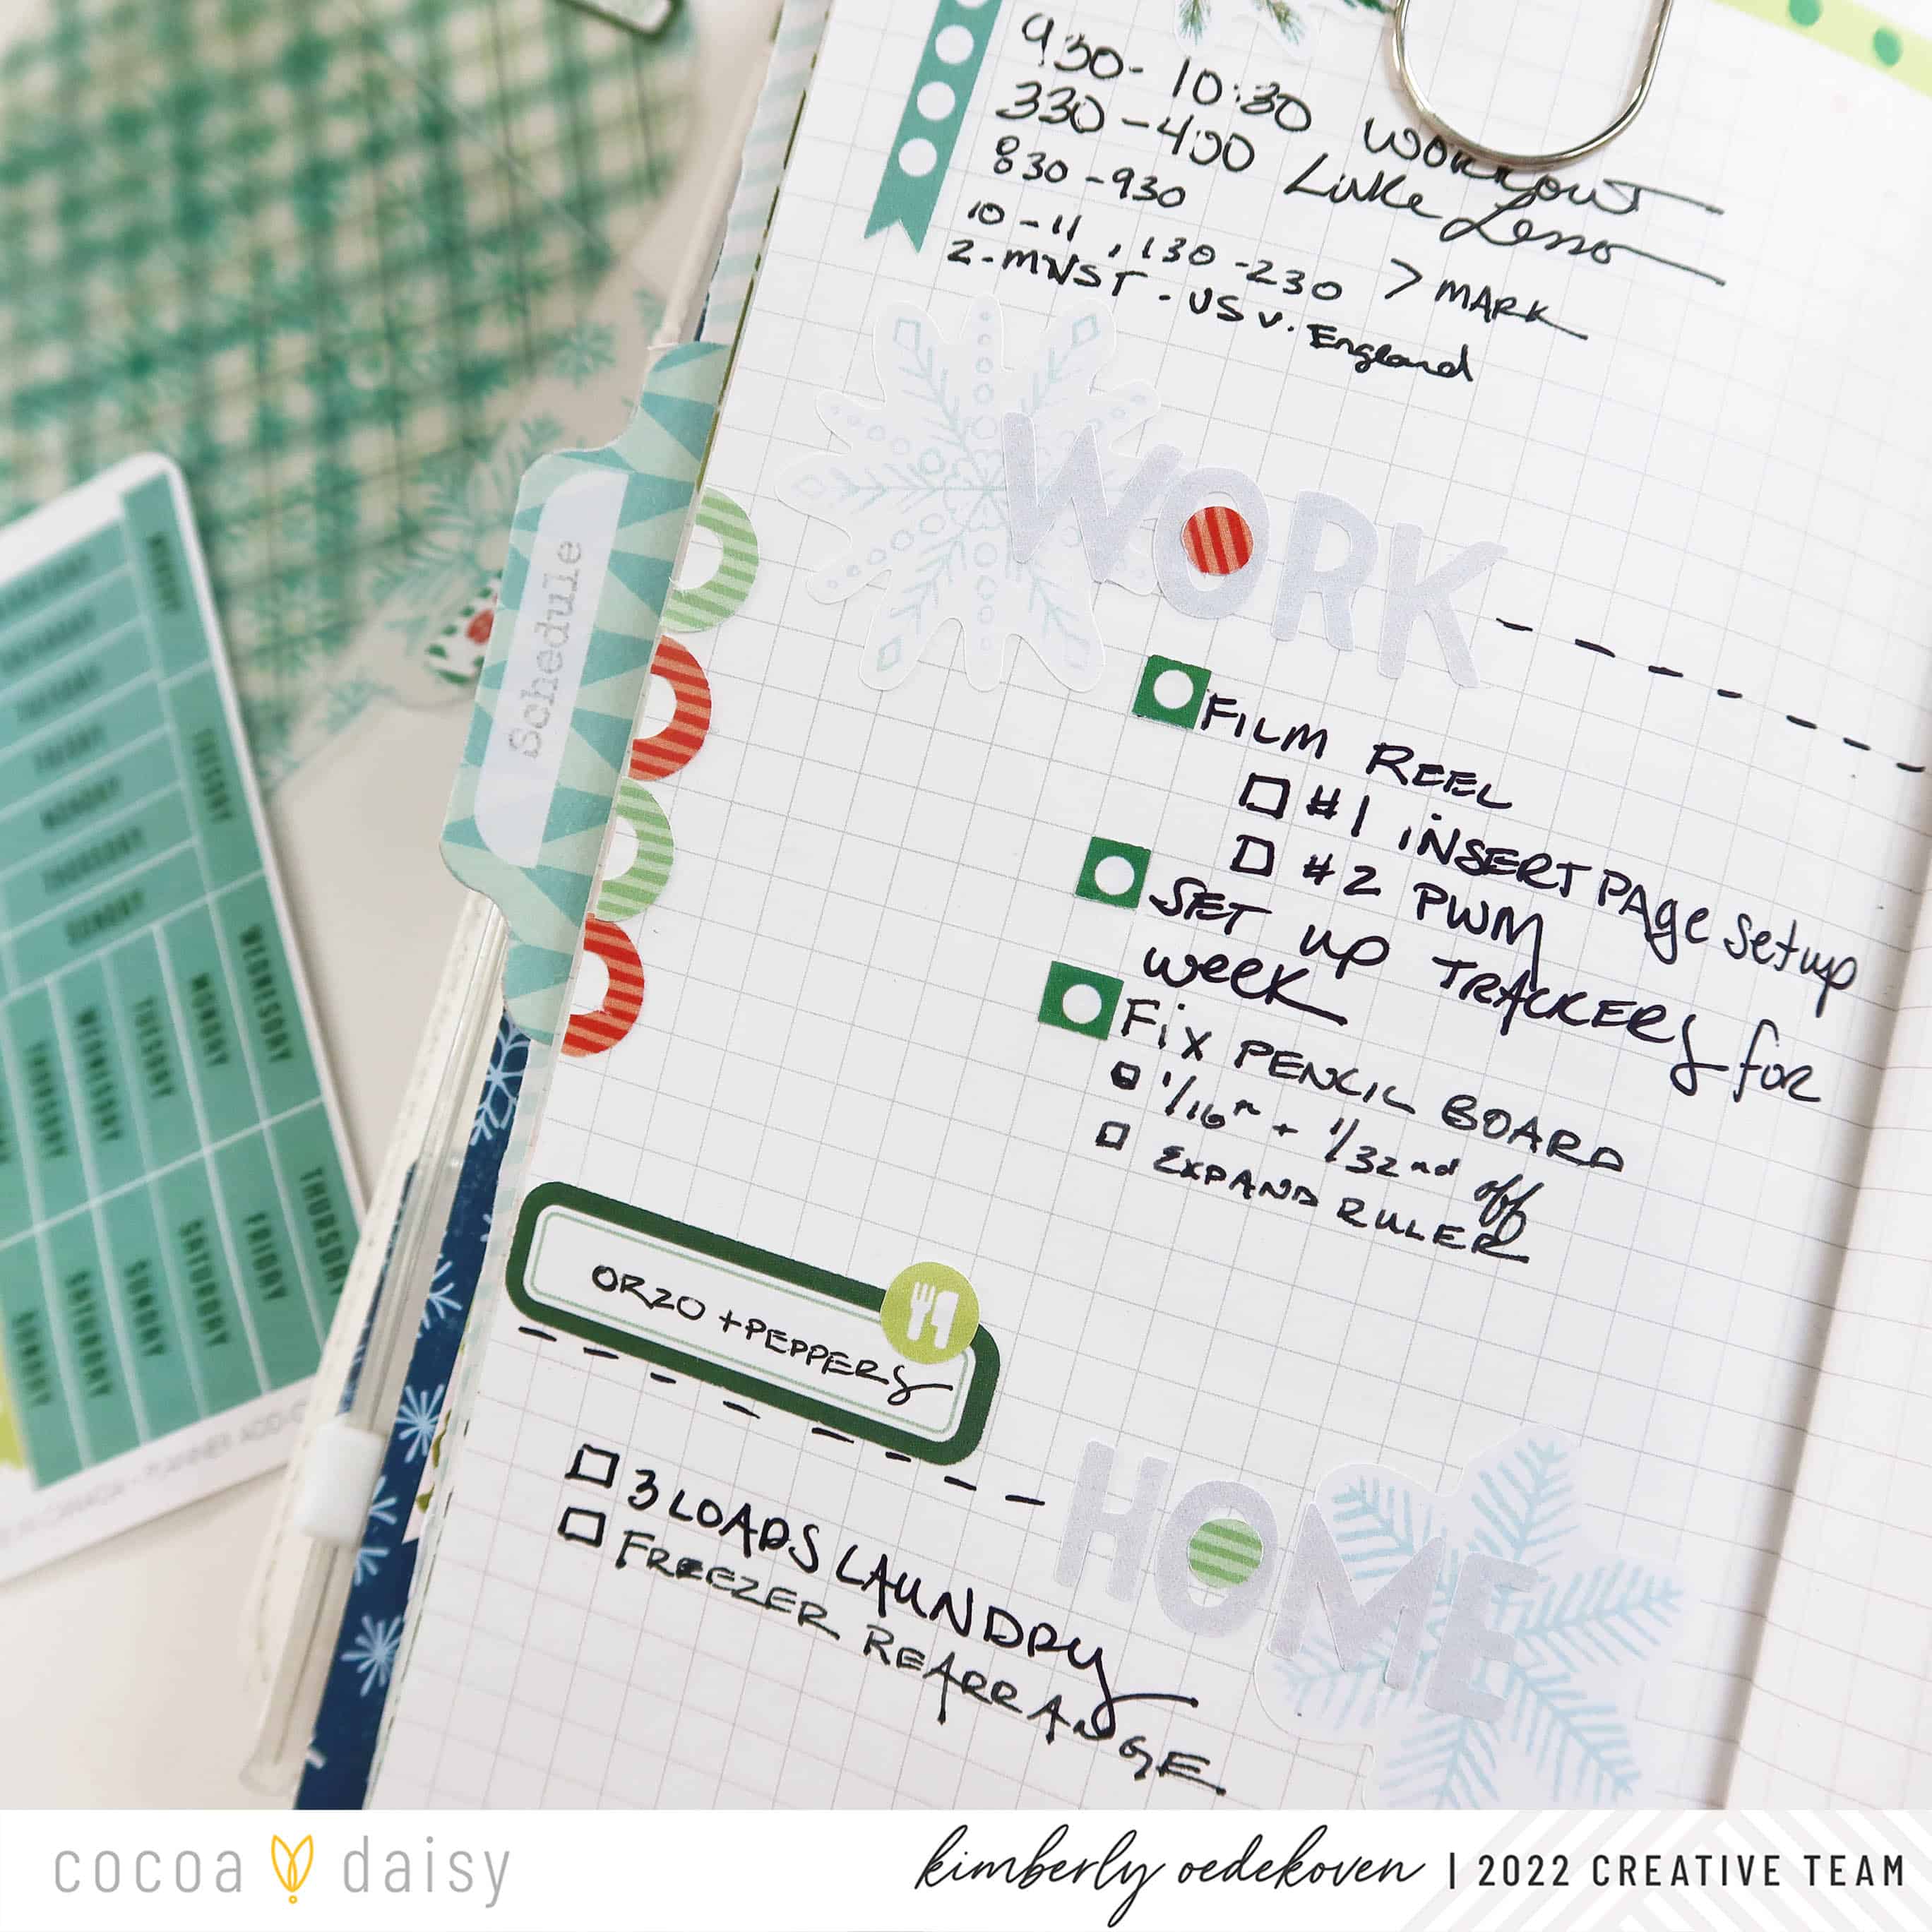 930- 10:30 WORKOUT
330-400 Luke Lesso
830-930
10-11, 130-230 > MARK
2-MNST - US v. England
WORK
FILM REEL
#1 INSERT PAge Setup
#2 PWM
SET up TRACKERS for
week
Fix PENCIL BOARD
1/16" + 1/32nd off
EXPAND RULER
ORZO + PEPPERS
HOME
3 LOADS LAUNDRY
FREEZER REARRANGE
Schedule
MONDAY
TUESDAY
WEDNESDAY
THURSDAY
TUESDAY
FRIDAY
MONDAY
THURSDAY
SUNDAY
MONDAY
TUESDAY
WEDNESDAY
THURSDAY
FRIDAY
SATURDAY
SUNDAY
SATURDAY
SUNDAY
cocoa daisy
kimberly oedekoven | 2022 CREATIVE TEAM